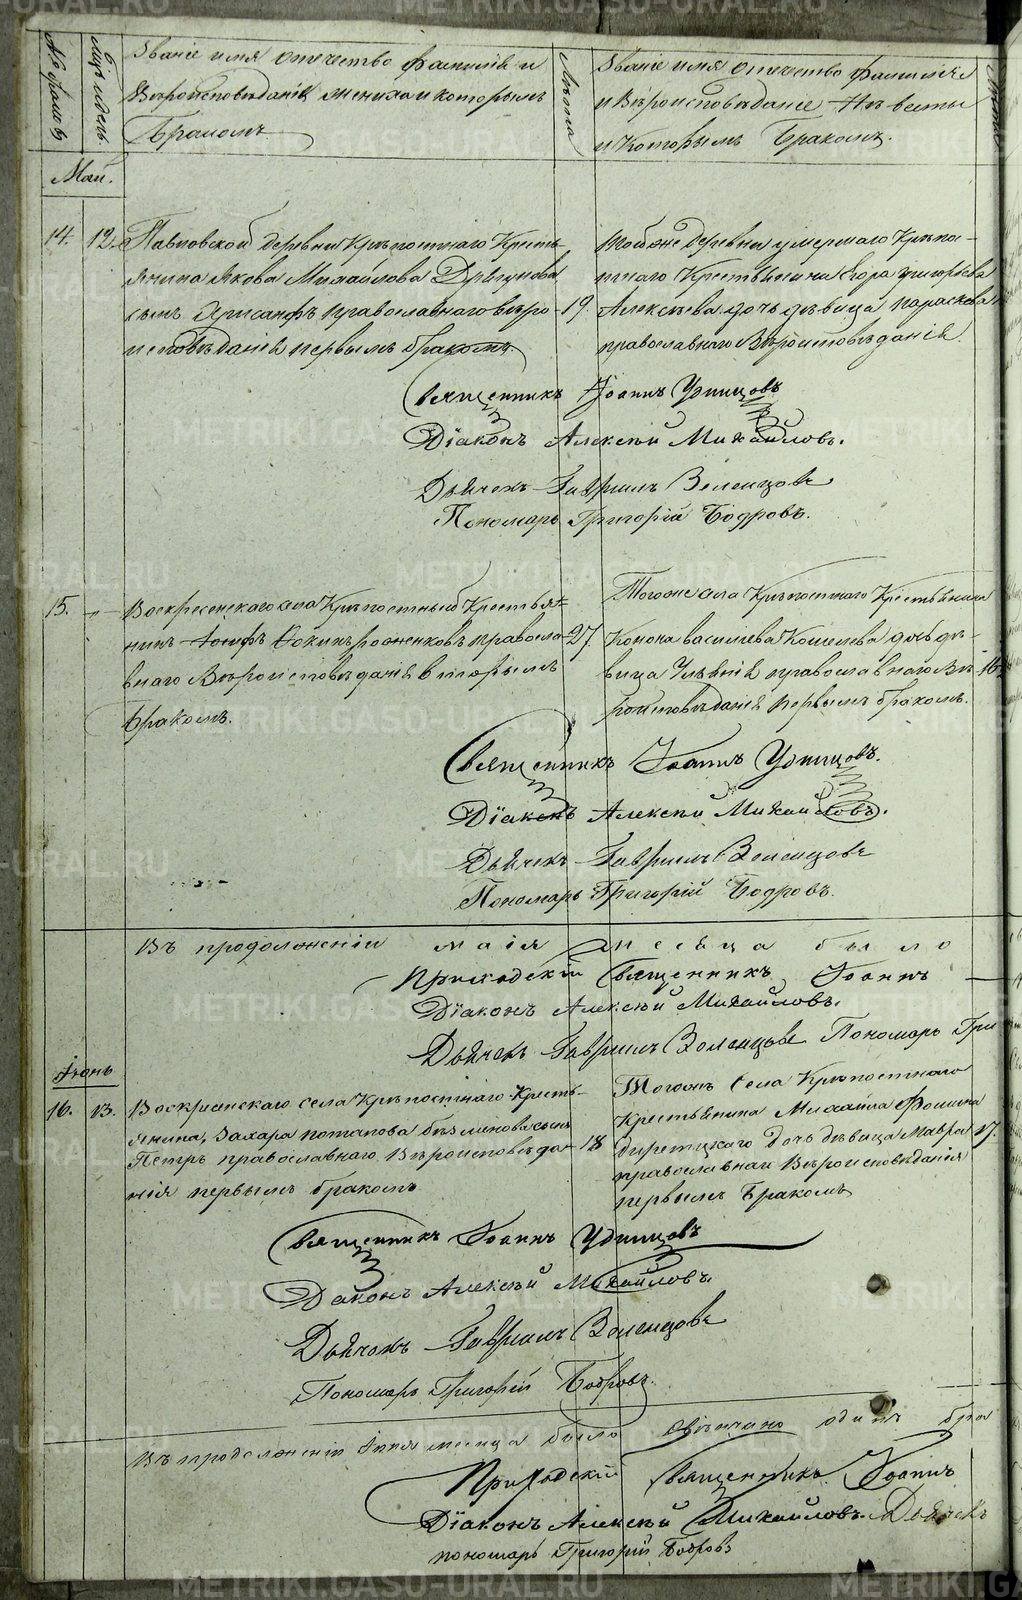 № браковъ
Мцъ и день.
Званіе имя отечество фамилія и
Вѣроисповѣданіе жениха и которымъ
Бракомъ
Лѣта
Званіе имя отечество фамилія
и Вѣроисповѣданіе Невесты
и Которымъ Бракомъ.
Май.
14.
12.
Павловской деревни Крѣпостнаго Кресть-
янина Якова Михайлова
сынъ Хрисанфъ православнаго вѣро-
исповѣданія первымъ бракомъ.
19.
Тойже деревни умершаго Крѣпо-
стнаго Крестьянина Егора Григорьева
Алексѣева дочь дѣвица Параскева
православнаго Вѣроисповѣданія.
Священникъ Іоаннъ Удинцовъ
Діаконъ Алексѣй Михайловъ.
Дьячекъ Гавріилъ Зеленцовъ
Пономарь Григорій Бодровъ.
15.
Воскресенскаго села Крѣпостный Крестья-
нинъ православ-
наго Вѣроисповѣданія вторымъ
бракомъ.
27.
Тогоже села Крѣпостнаго Крестьянина
Конона Васильева Кошелева дочь дѣ-
вица православнаго Вѣ-
роисповѣданія первымъ бракомъ.
16
Священникъ Іоаннъ Удинцовъ.
Діаконъ Алексѣй Михайловъ.
Дьячекъ Гавріилъ Зеленцовъ
Пономарь Григорій Бодровъ.
Въ продолженіи маія месяца было
Приходскій Священникъ Іоаннъ
Діаконъ Алексѣй Михайловъ.
Дьячекъ Гавріилъ Зеленцовъ Пономарь Гри
Іюнь
16.
13.
Воскресенскаго села Крѣпостнаго Кресть-
янина, Захара Потапова сынъ
Петръ православнаго Вѣроисповѣда-
нія первымъ бракомъ
18
Тогожъ Села Крѣпостнаго
Крестьянина Михайла Фомина
дочь дѣвица Мавра
православнаго Вѣроисповѣданія
первымъ Бракомъ
17.
Священникъ Іоаннъ Удинцовъ
Діаконъ Алексѣй Михайловъ.
Дьячекъ Гавріилъ Зеленцовъ
Пономарь Григорій Бодровъ.
Въ продолженіи Іюня месяца было свѣнчано одинъ бра
Приходскій Священникъ Іоаннъ
Діаконъ Алексѣй Михайловъ. Дьячекъ
пономарь Григорій Бодровъ
METRIKI.GASU-URAL.RU